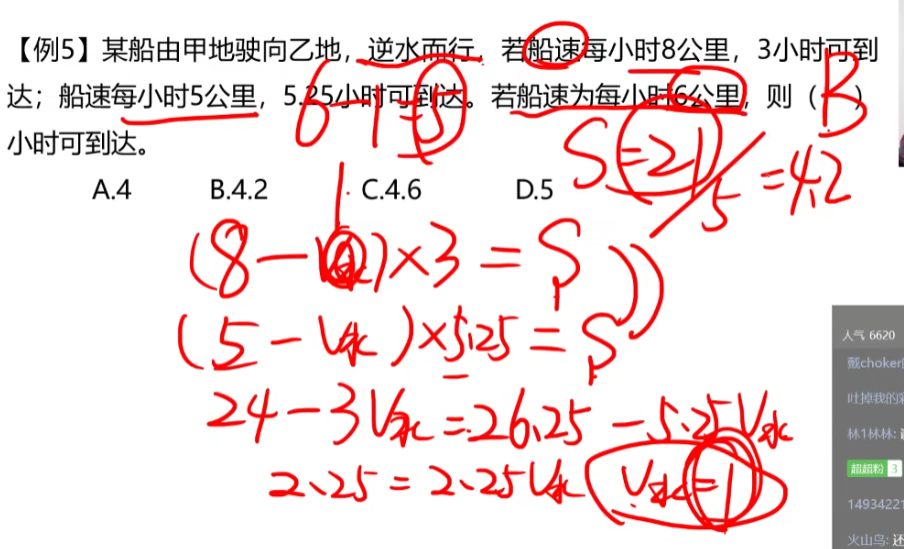 【例5】某船由甲地驶向乙地，逆水而行，若船速每小时8公里，3小时可到
达；船速每小时5公里，5.25小时可到达。若船速为每小时6公里，则（B）
小时可到达。
6-1=5
S=21/5=4.2
A.4 B.4.2 C.4.6 D.5
1
(8-V水)×3=S
(5-V水)×5.25=S
24-3V水=26.25-5.25V水
2.25=2.25V水 V水=1
人气 6620
戴choker
吐掉我的
林1林林:
超超粉 3
14934221
火山鸟: 还